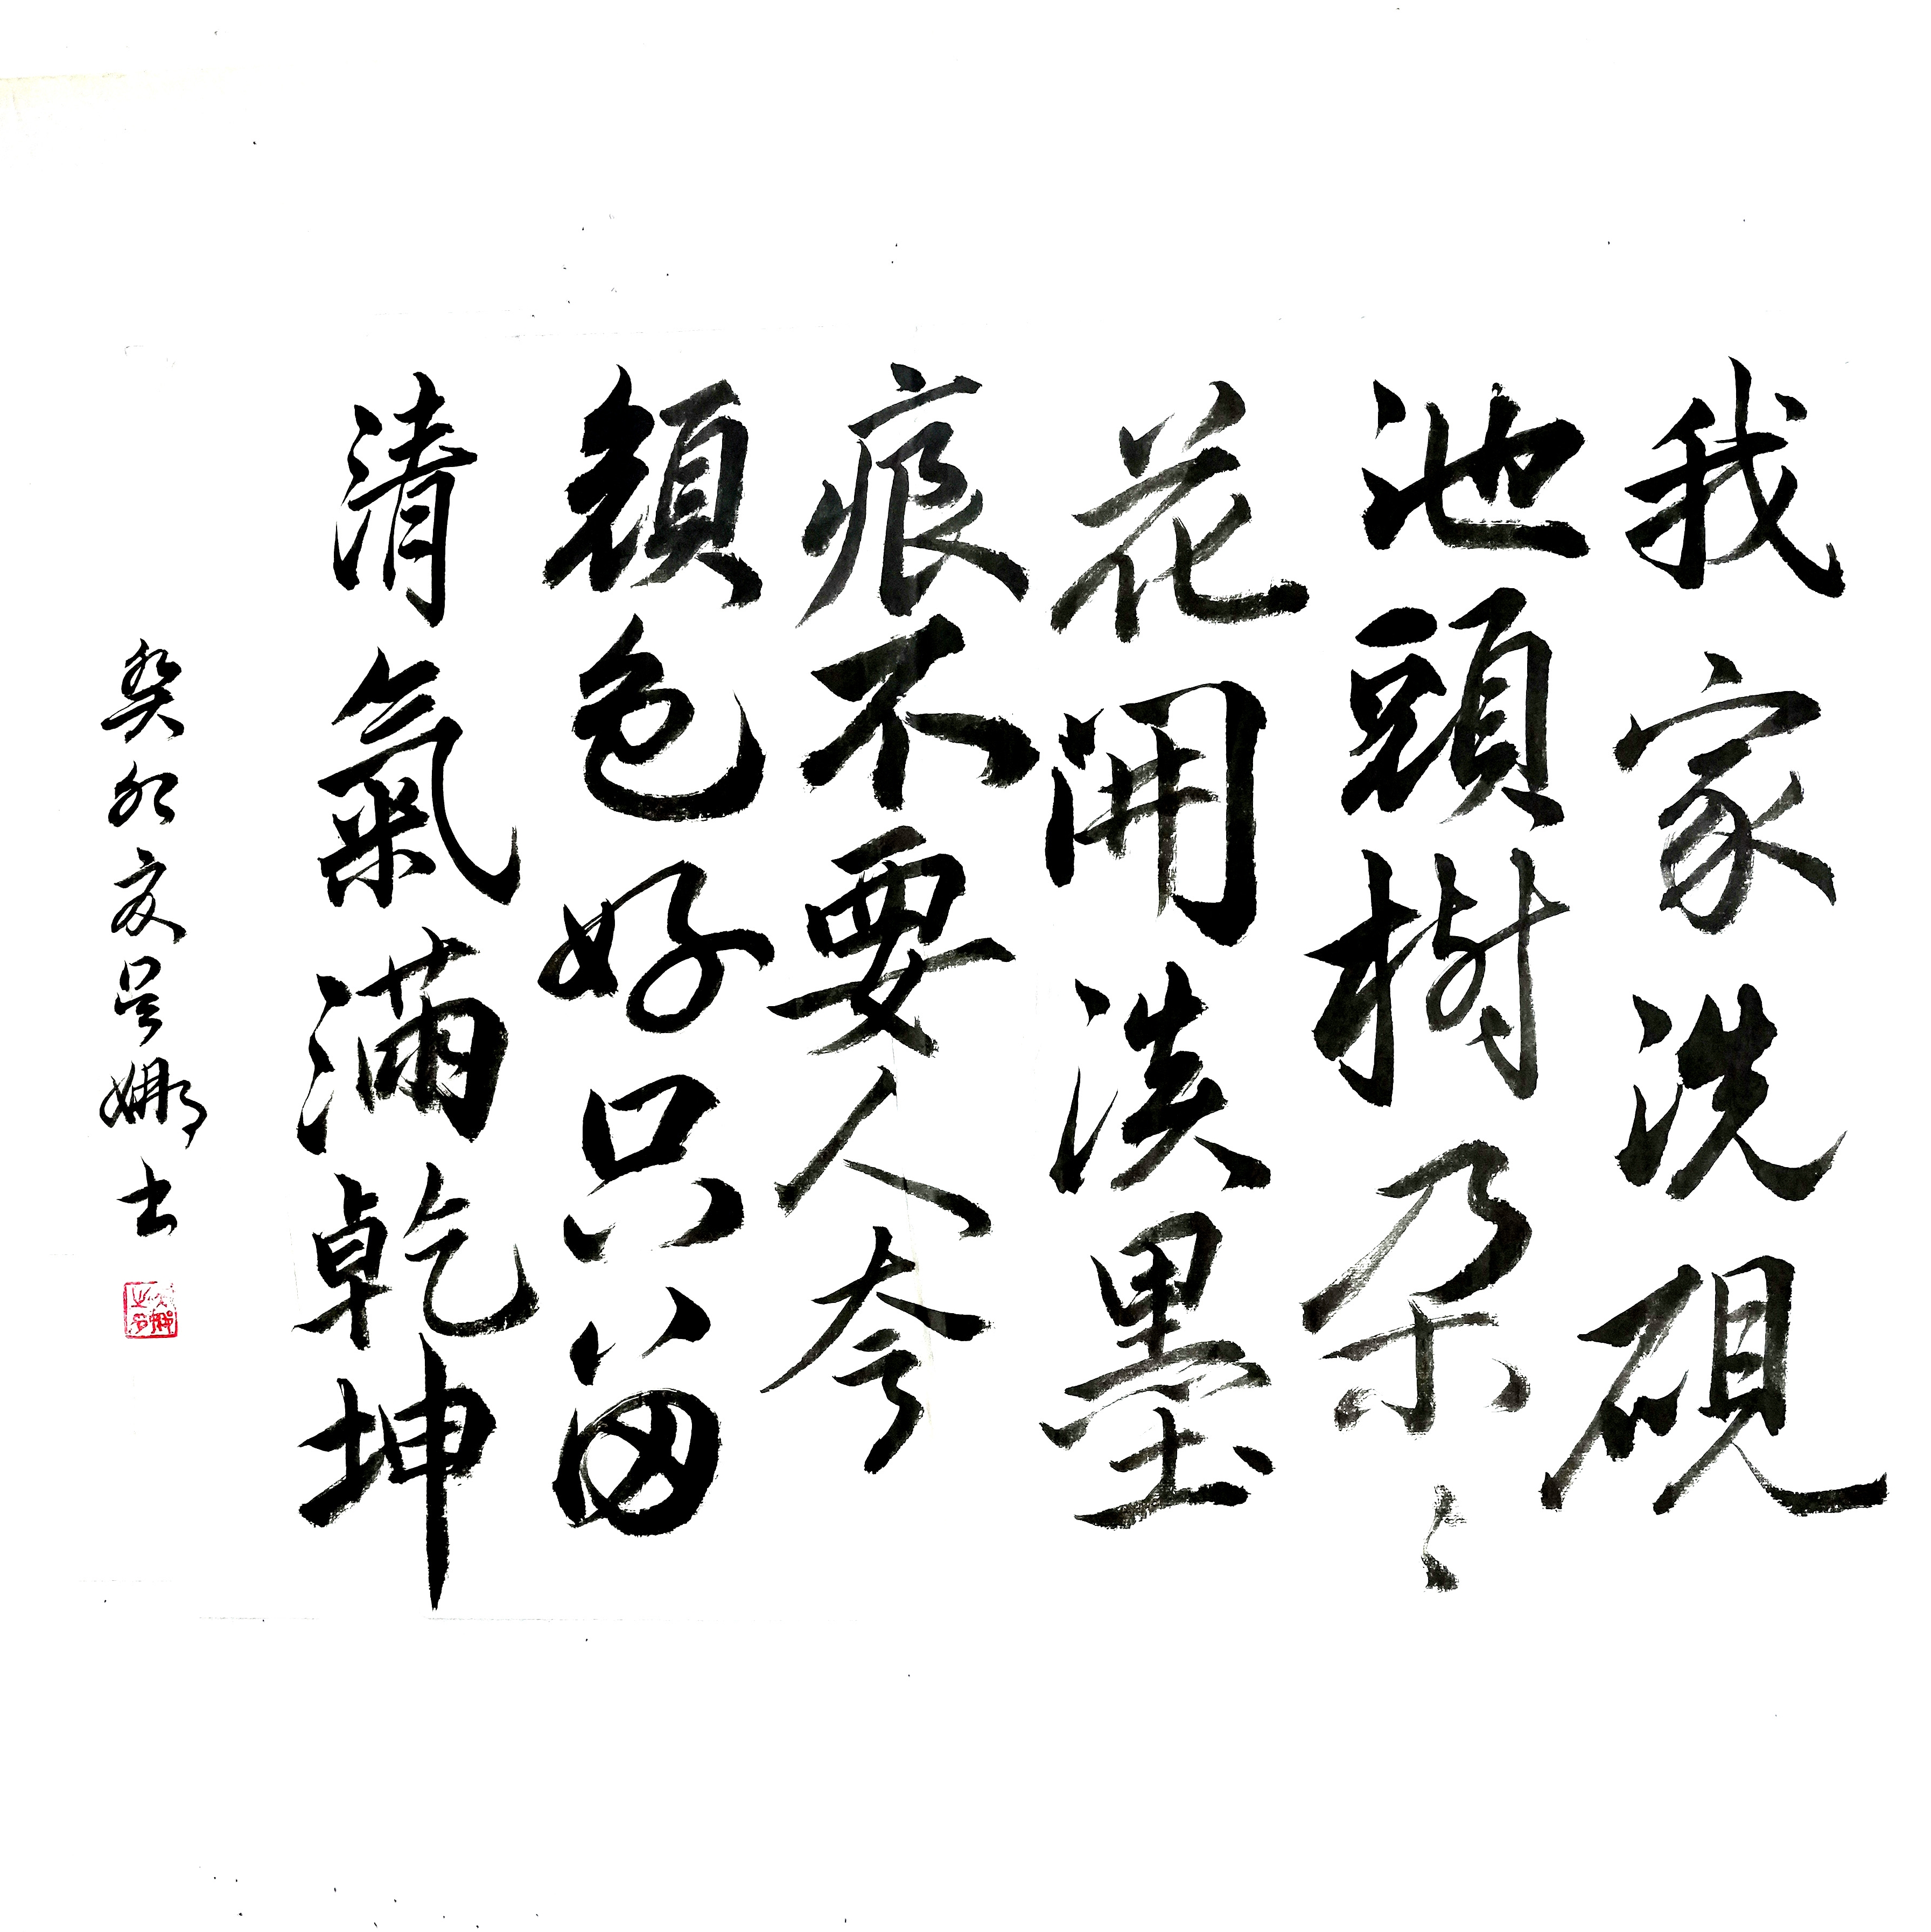 我家洗硯
池頭樹朵〻
花開淡墨
痕不要人夸
顏色好只留
清氣滿乾坤
癸卯夏吳娜書